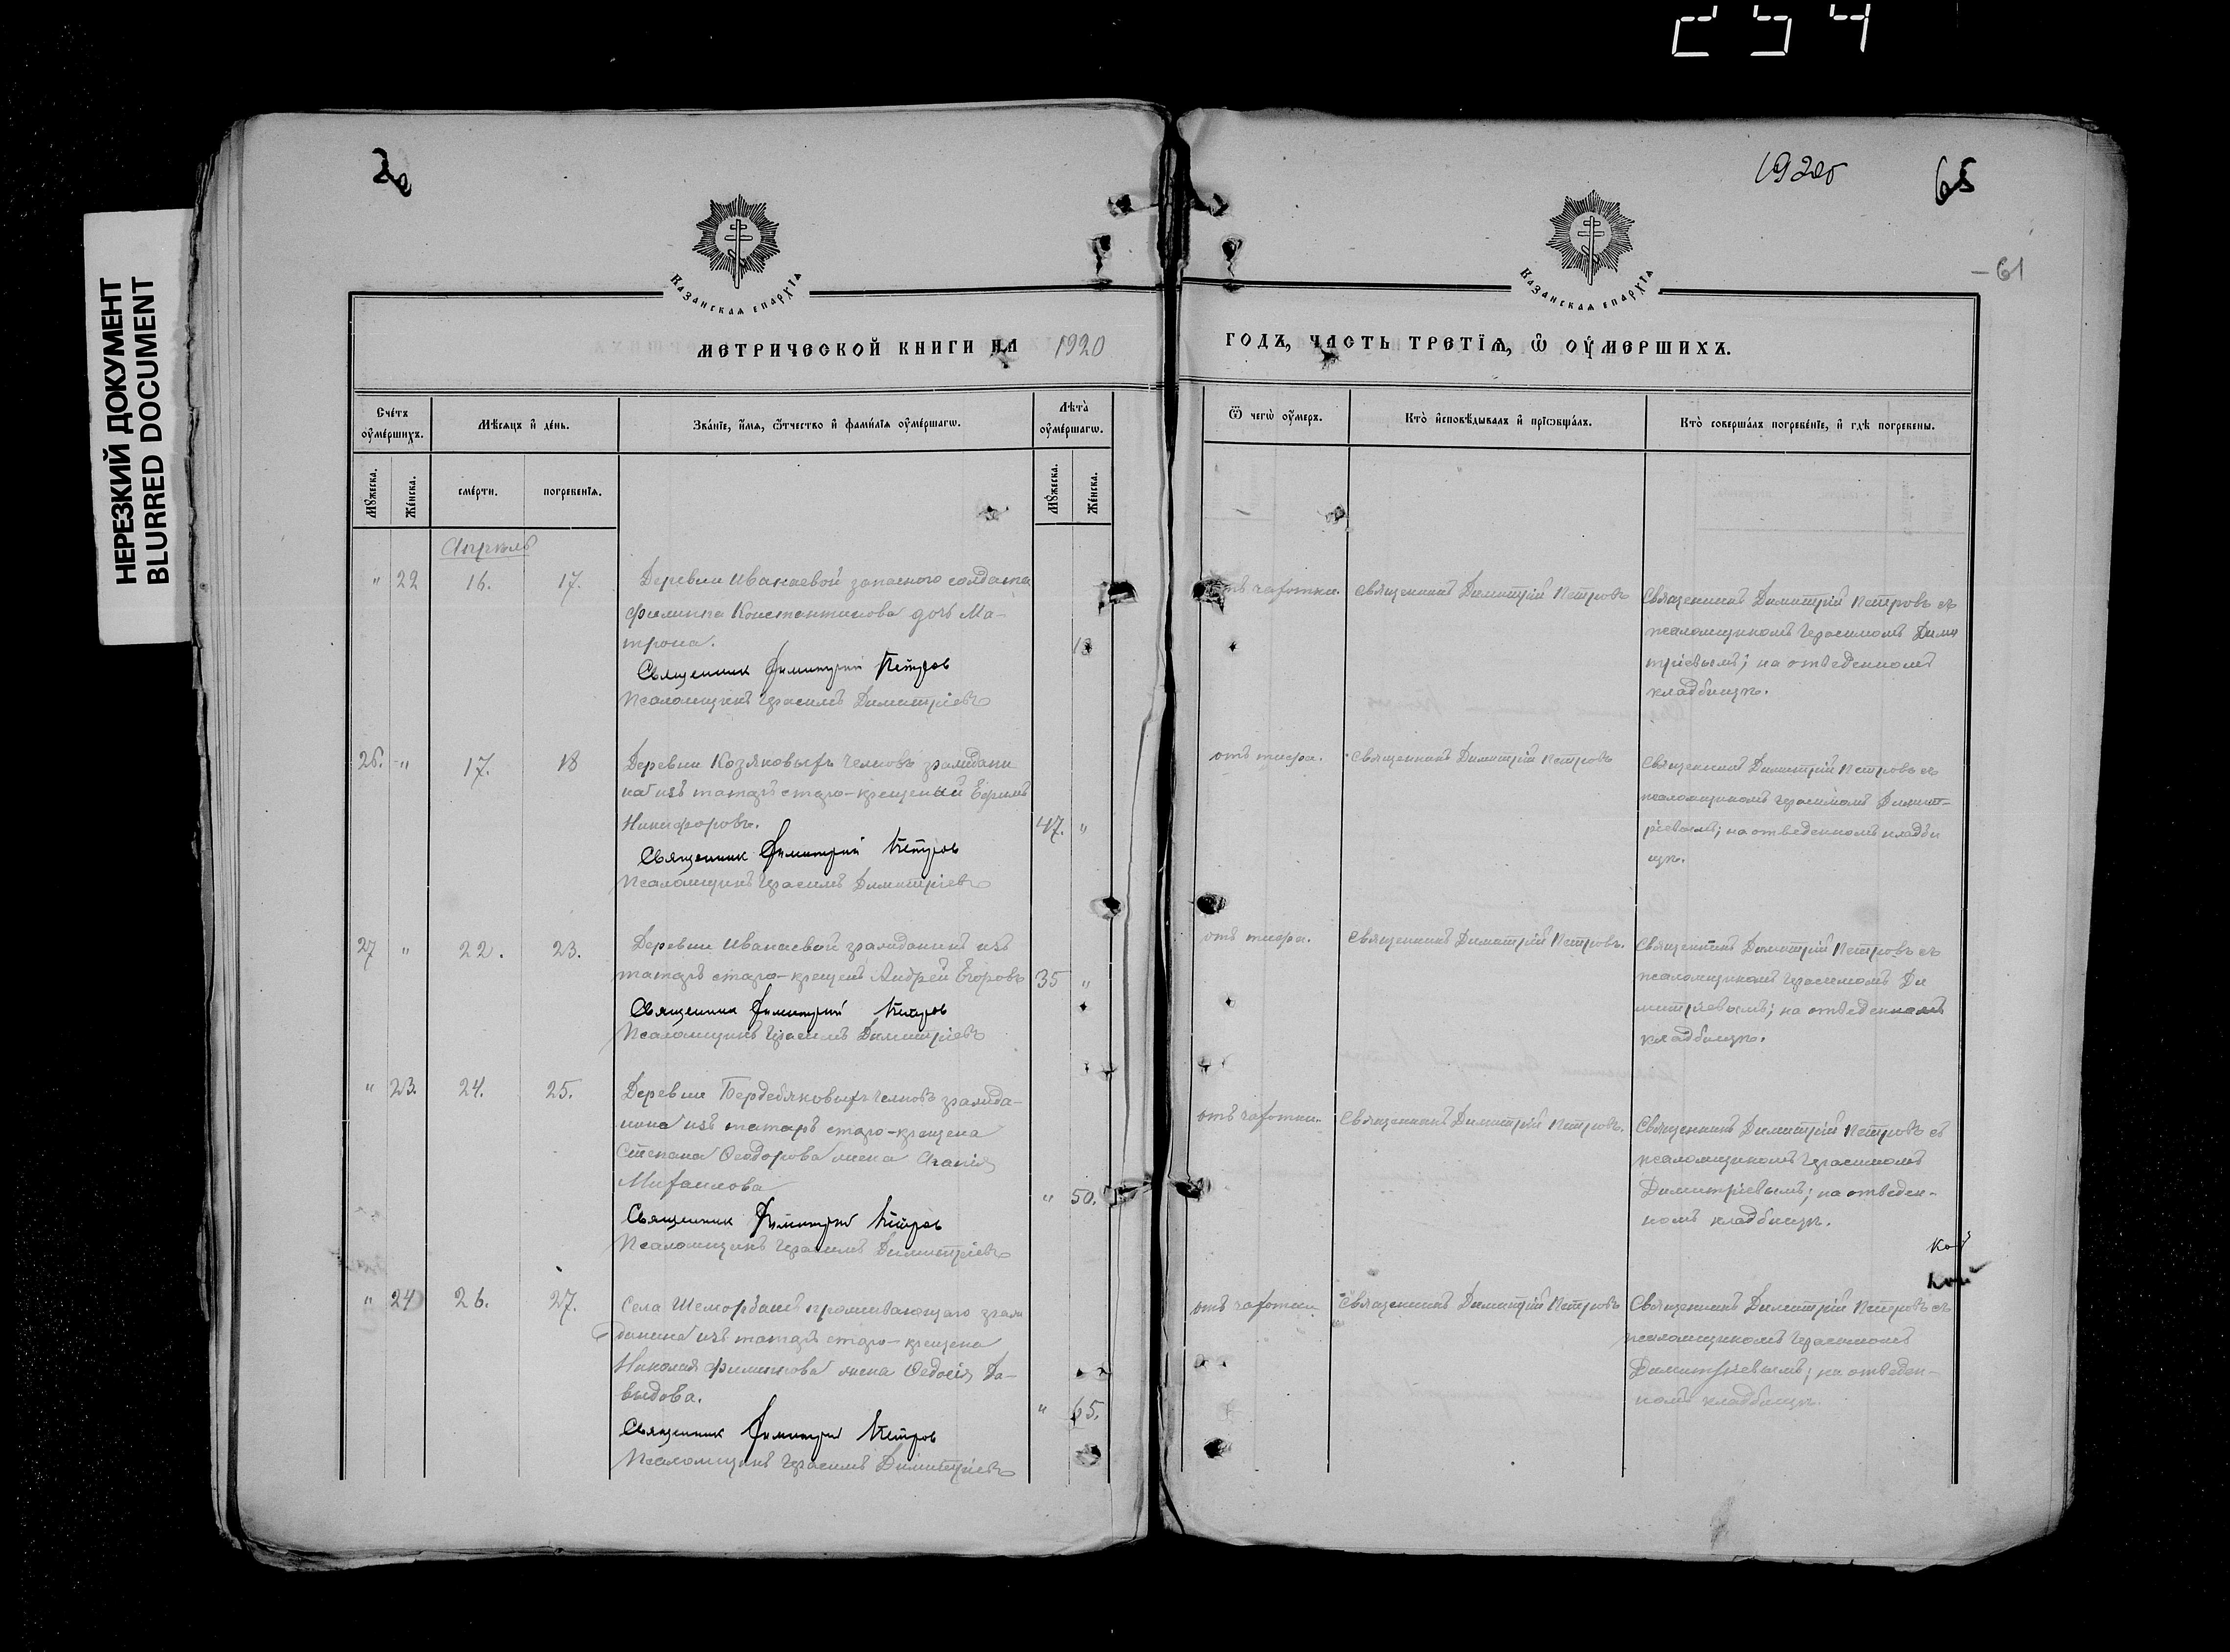 254
НЕРЕЗКИЙ ДОКУМЕНТ
BLURRED DOCUMENT
1920г
65
61
КАЗАНСКАЯ ЕПАРХІЯ
КАЗАНСКАЯ ЕПАРХІЯ
МЕТРИЧЕСКОЙ КНИГИ НА 1920 ГОДЪ, ЧАСТЬ ТРЕТІЯ, Ѿ ОУМЕРШИХЪ.
Счетъ оумершихъ.
Мѣсяцъ и день.
Званіе, имя, отчество и фамилія оумершагѡ.
Лѣта оумершагѡ.
Ѿ чегѡ оумеръ.
Кто исповѣдывалъ и пріѡбщалъ.
Кто совершалъ погребеніе, и гдѣ погребены.
Мужеска.
Женска.
смерти.
погребенія.
Мужеска.
Женска.
Апрѣль
" 22 16. 17.
Деревни Иванаевой запаснаго солдата
Филиппа Константинова дочь Ма-
трона.
18
Священник Димитрий Петров
Псаломщикъ Герасимъ Димитріевъ
отъ чахотки.
Священникъ Димитрій Петровъ
Священникъ Димитрій Петровъ съ
псаломщикомъ Герасимомъ Дими
тріевымъ; на отведенномъ
кладбищѣ.
26. " 17. 18
Деревни Козяковыхъ Челновъ граждани
на изъ татаръ старо-крещеный Ефимъ
Никифоровъ.
47. "
Священник Димитрий Петров
Псаломщикъ Герасимъ Димитріевъ
отъ тифа.
Священникъ Димитрій Петровъ
Священникъ Димитрій Петровъ съ
псаломщикомъ Герасимомъ Димит-
ріевымъ; на отведенномъ кладби
щѣ.
27 " 22. 23.
Деревни Иванаевой гражданинъ изъ
татаръ старо-крещенъ Андрей Егоровъ
35 "
Священник Димитрий Петров
Псаломщикъ Герасимъ Димитріевъ
отъ тифа.
Священникъ Димитрій Петровъ.
Священникъ Димитрій Петровъ съ
псаломщикомъ Герасимомъ Ди
митріевымъ; на отведенномъ
кладбищѣ.
" 23. 24. 25.
Деревни Бердебяковыхъ Челновъ гражда-
нина изъ татаръ старо-крещена
Степана Ѳеодорова жена Агапія
Михаилова
" 50.
Священник Димитрий Петров
Псаломщикъ Герасимъ Димитріевъ
отъ чахотки.
Священникъ Димитрій Петровъ.
Священникъ Димитрій Петровъ съ
псаломщикомъ Герасимомъ
Димитріевымъ; на отведен-
номъ кладбищѣ.
" 24 26. 27.
Села Шеморбашъ проживающаго граж
данина изъ татаръ старо-крещена
Николая Филиппова жена Ѳедосія Да-
выдова.
" 65.
Священник Димитрий Петров
Псаломщикъ Герасимъ Димитріевъ
отъ чахотки
Священникъ Димитрій Петровъ
Священникъ Димитрій Петровъ съ
псаломщикомъ Герасимомъ
Димитріевымъ; на отведен-
номъ кладбищѣ.